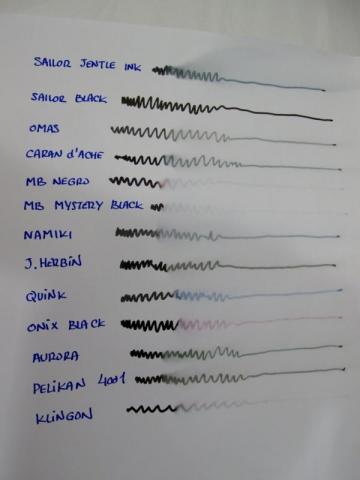 SAILOR JENTLE INK
SAILOR BLACK
OMAS
CARAN d'ACHE
MB NEGRO
MB MYSTERY BLACK
NAMIKI
J. HERBIN
QUINK
ONIX BLACK
AURORA
PELIKAN 4001
KLINGON